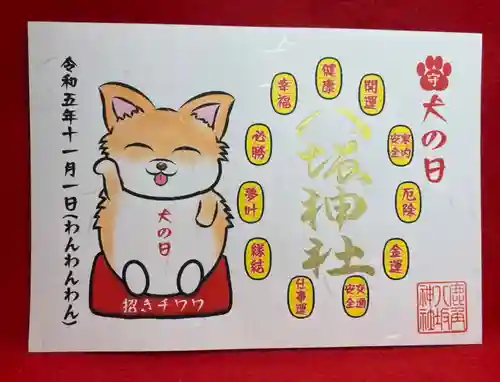 守
犬の日
健康
開運
幸福
家内安全
必勝
厄除
夢叶
金運
縁結
交通安全
仕事運
八坂神社
令和五年十一月一日(わんわんわん)
犬の日
招きチワワ
鹿角八坂神社